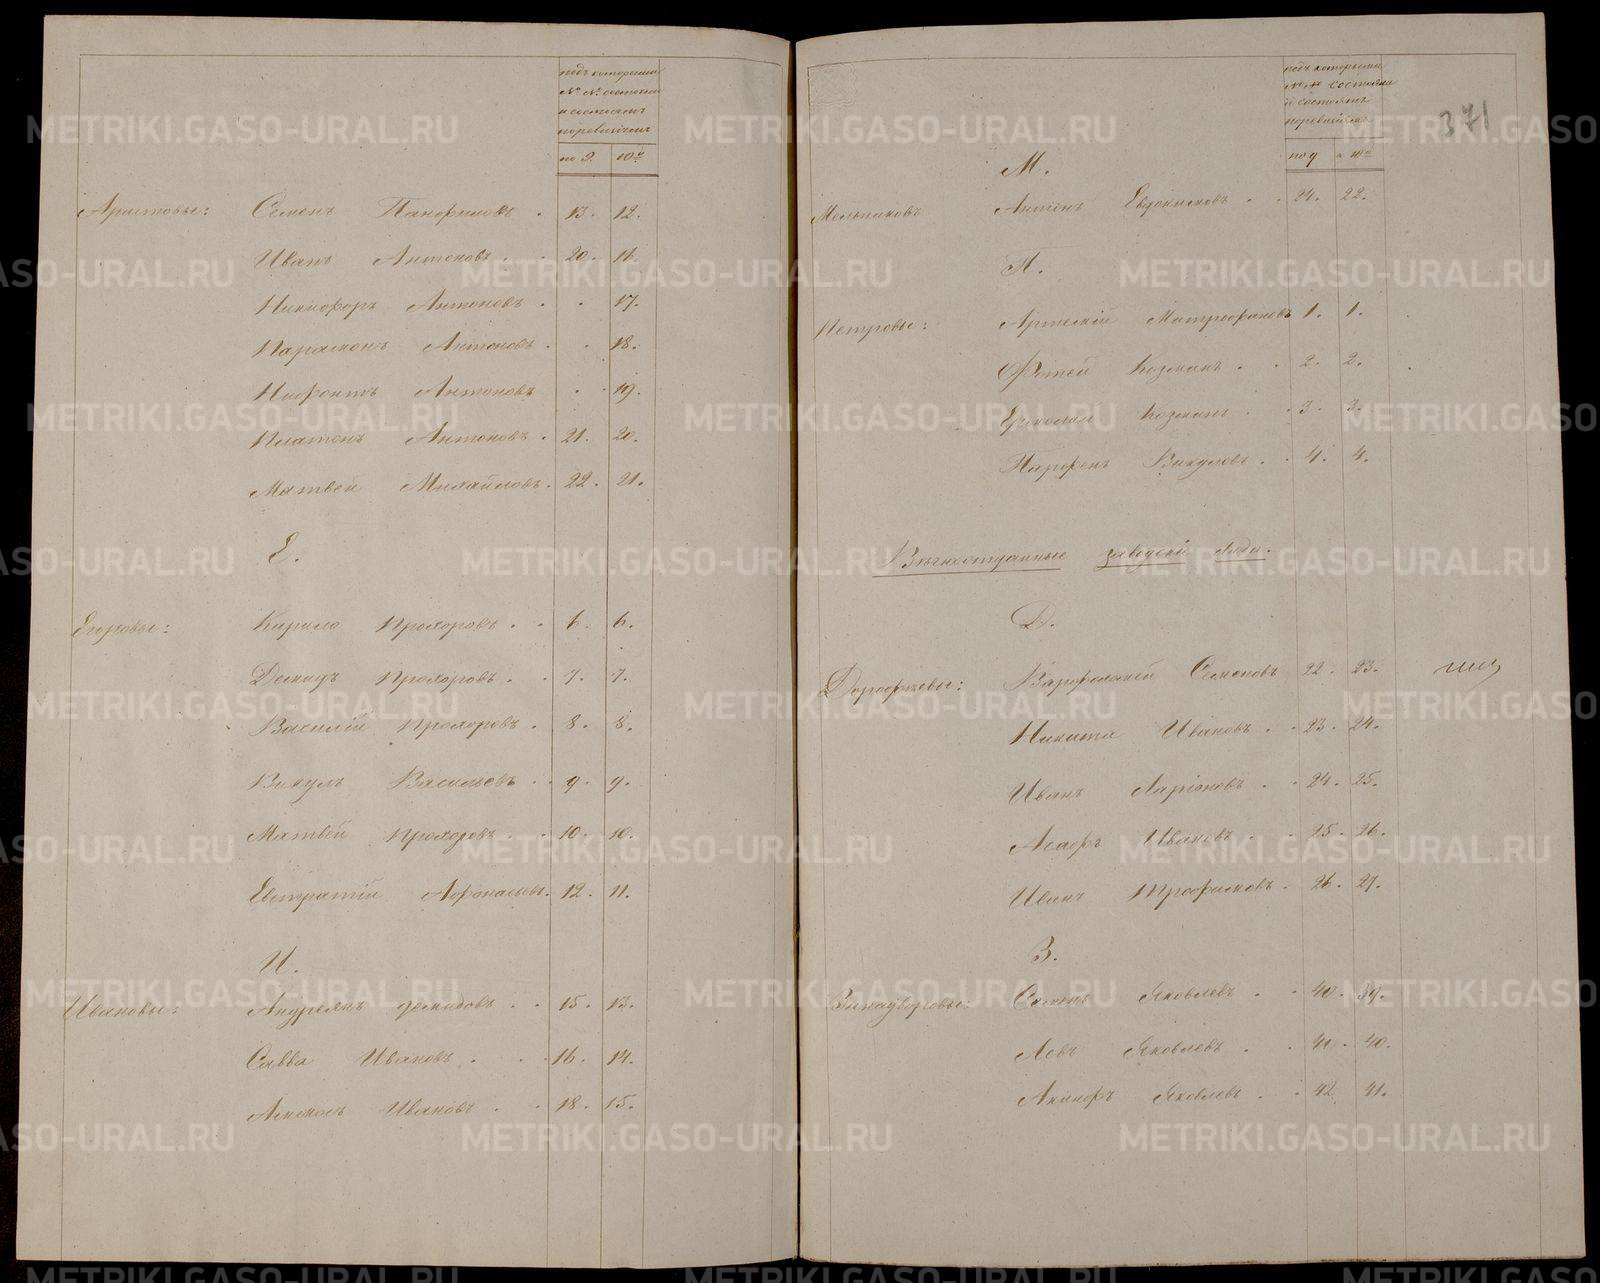 подъ которыми
№ № состояли
и состоятъ
по ревизіямъ
по 9. 10й
Аристовы: Семенъ Панфиловъ . 13. 12.
Иванъ Антоновъ . 20. 16.
Никифоръ Антоновъ . . 17.
Парамонъ Антоновъ . . 18.
Нифонтъ Антоновъ . . 19.
Платонъ Антоновъ . 21. 20.
Матвей Михайловъ . 22. 21.
Е.
Егоровы: Кирило Прохоровъ . . 6. 6.
Демидъ Прохоровъ . . 7. 7.
Василій Прохоровъ . . 8. 8.
Викулъ Васильевъ . . 9. 9.
Матвей Прохоровъ . . 10. 10.
Евстратій Афонасьевъ . 12. 11.
И.
Ивановы: Андреянъ Демидовъ . . 15. 13.
Савва Ивановъ . . 16. 14.
Ивановъ . . 18. 15.
371
подъ которыми
№ № состояли
и состоятъ
по ревизіямъ
по 9 и 10й
М.
Мельниковъ Антонъ Евдокимовъ . . 24. 22.
П.
Петровы: Артемій Митрофановъ 1. 1.
Фотей Козминъ . . 2. 2.
Ермолай Козминъ . . 3. 3.
Парфенъ Викуловъ . . 4. 4.
Вечноотданные заводскіе люди.
Д.
Дорофеевы: Варфоломей Семеновъ 22. 23.
Никита Ивановъ . . 23. 24.
Иванъ Ларіоновъ . . 24. 25.
Агафъ Ивановъ . . 25. 26.
Иванъ Трофимовъ . 26. 27.
З.
Семенъ Яковлевъ . . 40. 39.
Левъ Яковлевъ . . 41. 40.
Яковлевъ . . 42. 41.
METRIKI.GASO-URAL.RU